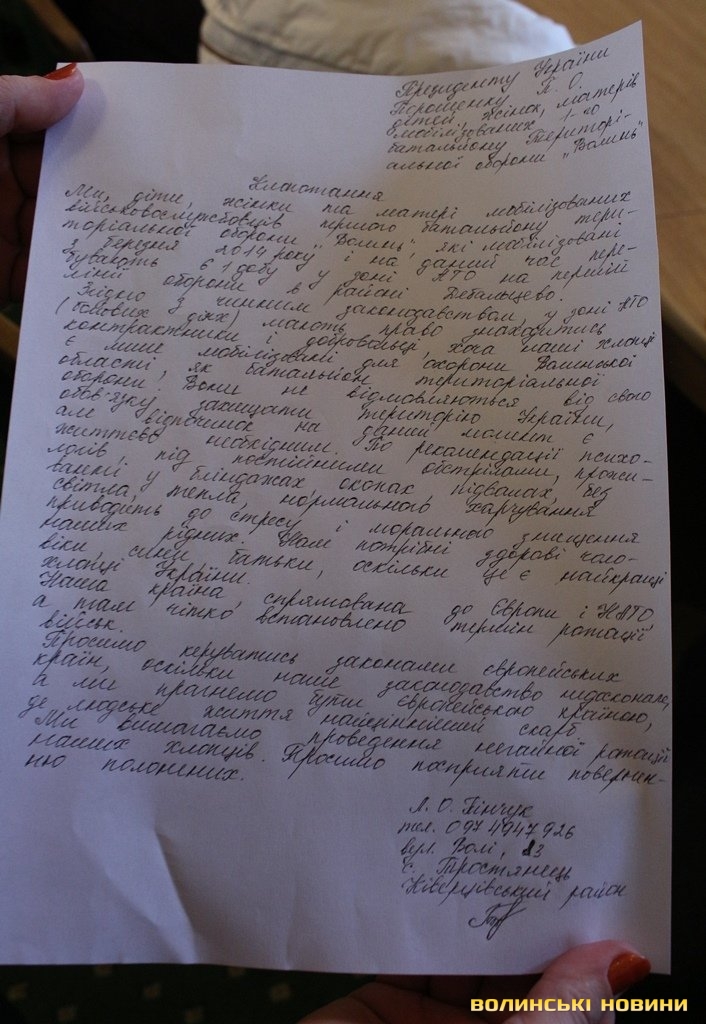 Президенту України
Порошенку П. О.
дітей, жінок, матерів
мобілізованих 1-го
батальйону Територі-
альної оборони „Волинь"
Клопотання
Ми, діти, жінки та матері мобілізованих
військовослужбовців першого батальйону тери-
торіальної оборони „Волинь", які мобілізовані
з березня 2014 року і на даний час пере-
бувають 61 добу у зоні АТО на першій
лінії оборони в районі Дебальцево.
Згідно з чинним законодавством, у зоні АТО
(бойових діях) мають право знаходитись
контрактники і добровольці, хоча наші хлопці
є лише мобілізовані для охорони Волинської
області, як батальйон територіальної
оборони. Вони не відмовляються від свого
обов'язку захищати територію України,
але відпочинок на даний момент є
життєво необхідним. По рекомендації психо-
логів, під постійними обстрілами, прожи-
ванні у бліндажах окопах, підвалах, без
світла, тепла, нормального харчування
приводить до стресу і морального знищення
наших рідних. Нам потрібні здорові чоло-
віки, сини, батьки, оскільки це є найкращі
хлопці України.
Наша країна, спрямована до Європи і НАТО,
а там чітко встановлено термін ротації
військ.
Просимо керуватись законами європейських
країн, оскільки наше законодавство недосконале,
а ми прагнемо бути Європейською країною,
де людське життя найцінніший скарб.
Ми вимагаємо проведення негайної ротації
наших хлопців. Просимо посприяти поверен-
ню полонених.
Л. О. Пінчук
тел. 0974947926
вул. Волі, 23
с. Тростянець
Ківерцівський район
ВОЛИНСЬКІ НОВИНИ